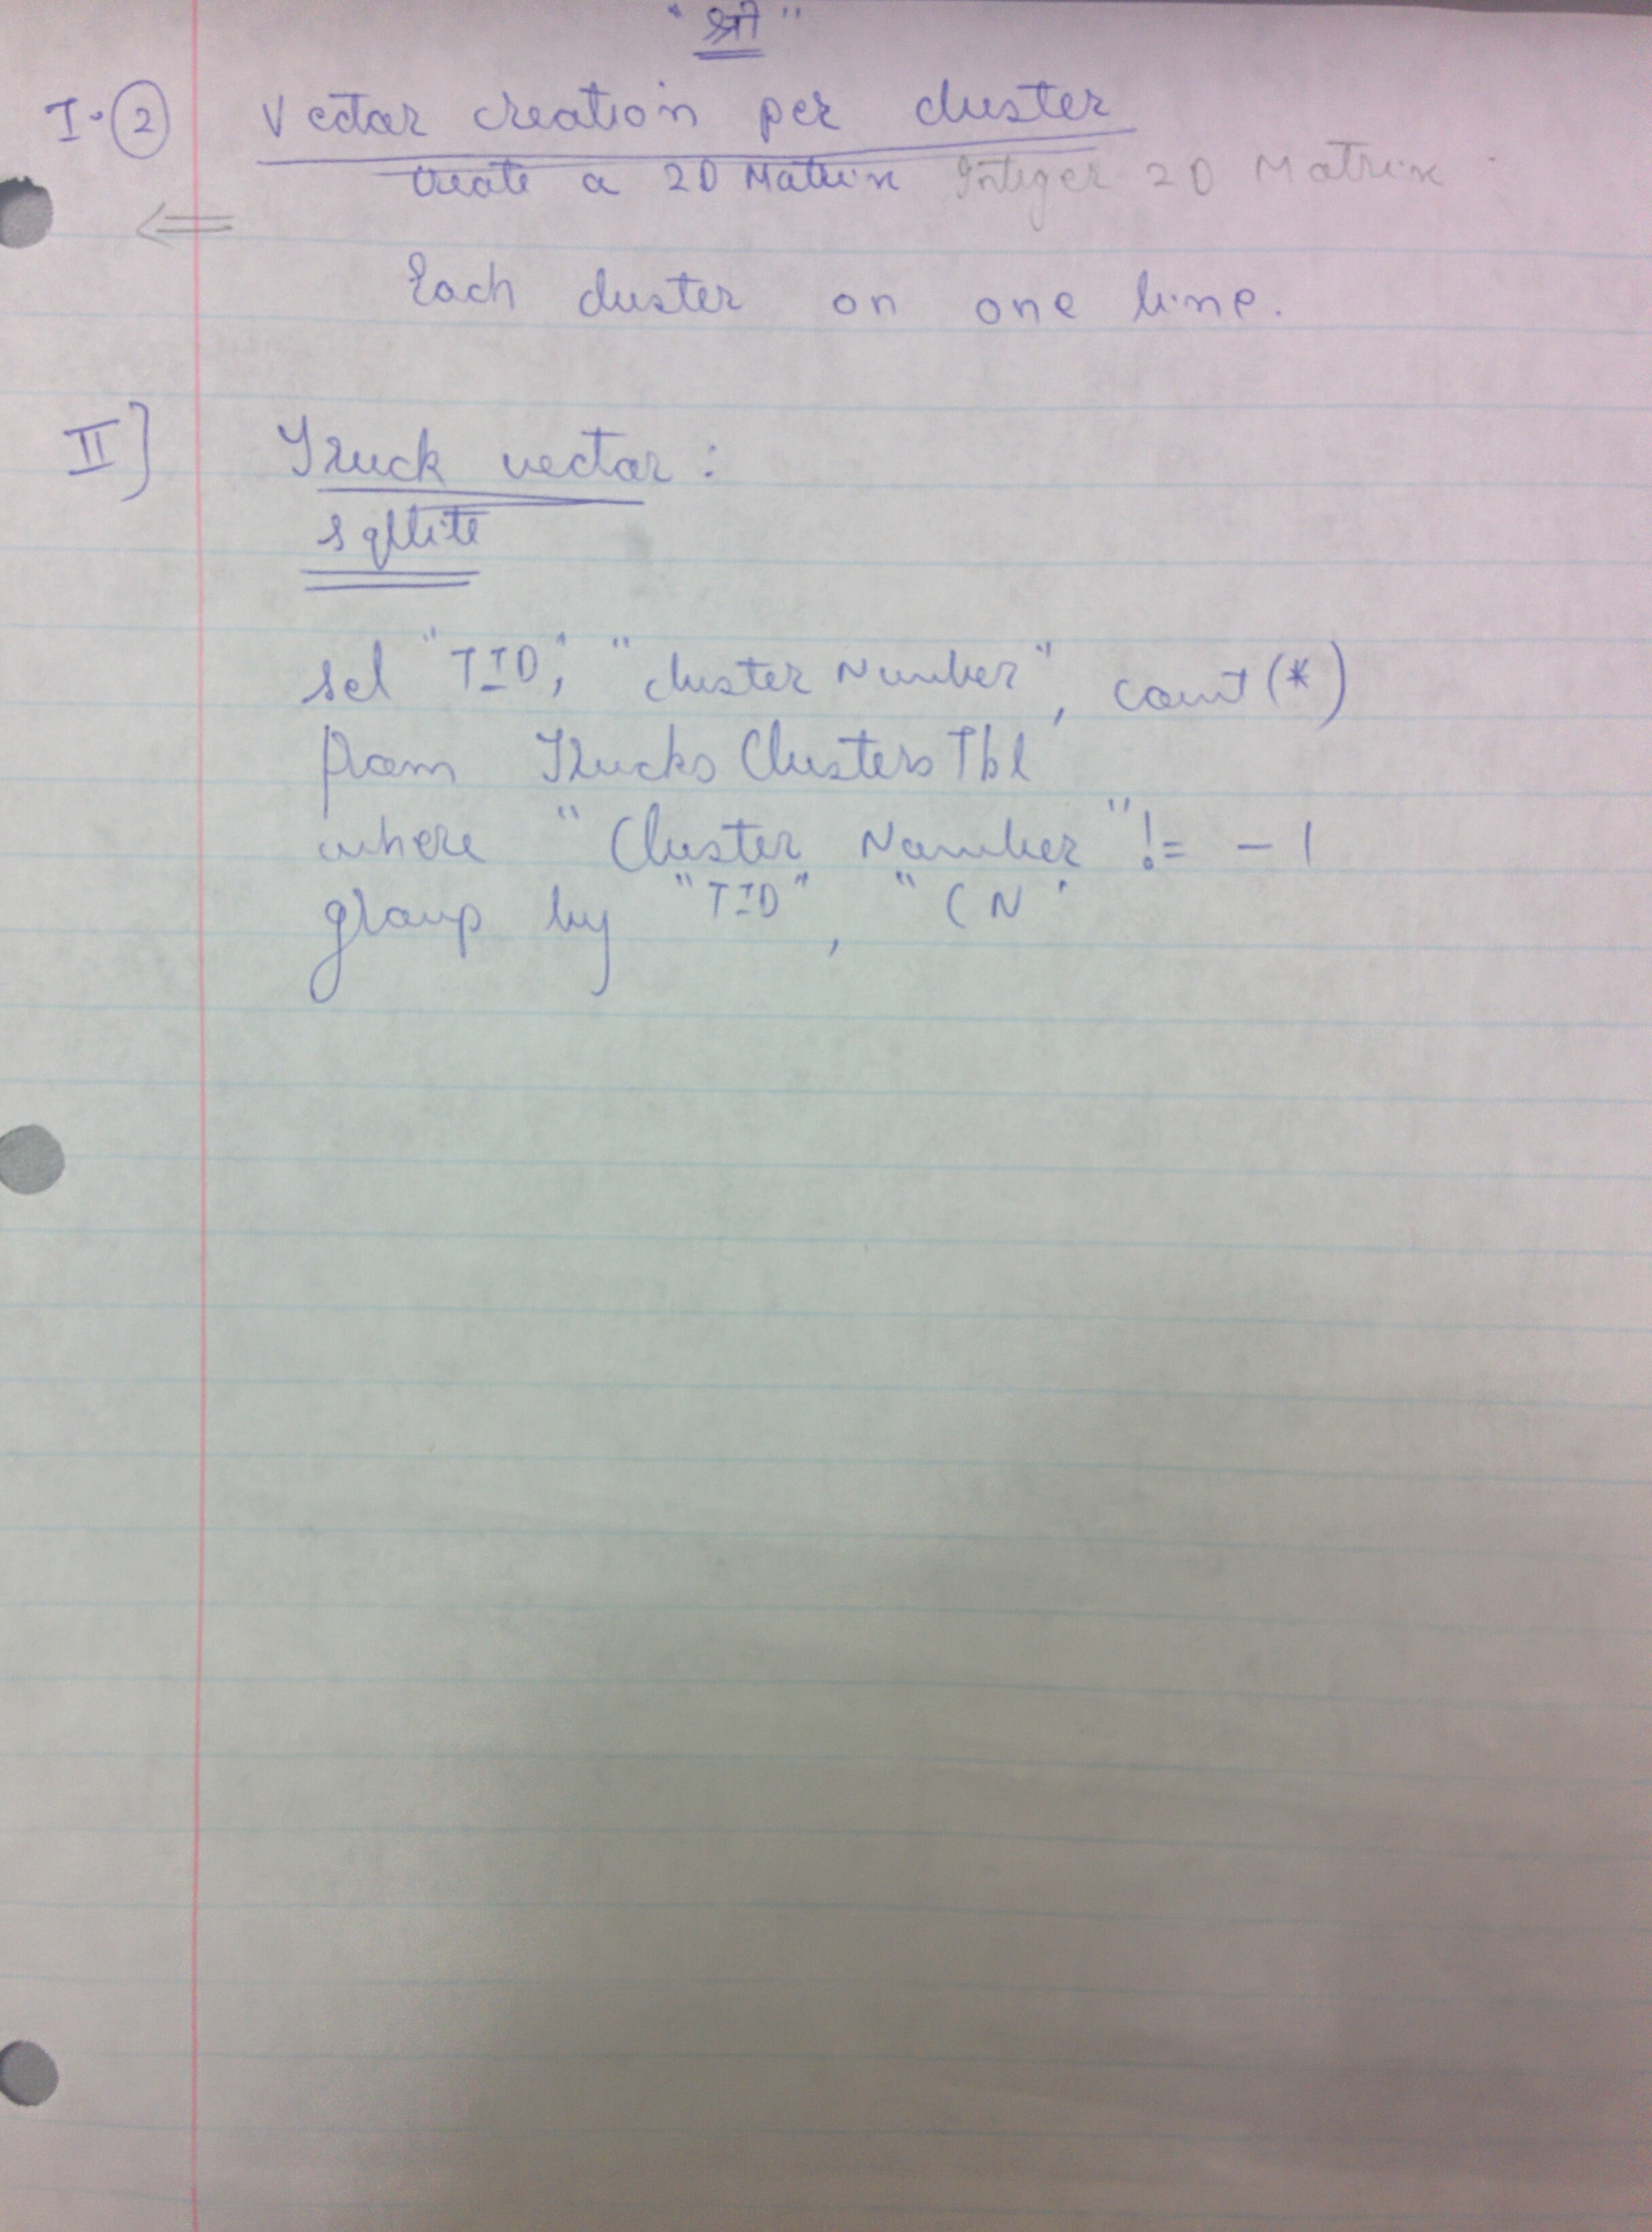 "श्री"
I.② Vector creation per cluster
Create a 2D Matrix Integer 2D Matrix
Each cluster on one line.
II] Truck vector:
sqllite
sel "TID", "Cluster Number", count(*)
from TrucksClustersTbl
where "Cluster Number" != -1
group by "TID", "CN"